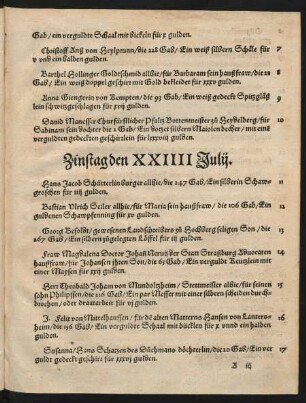 Gab/ ein verguldte Schaal mit bickeln für x gulden.
Christoff Anß von Heylprunn/ die 228 Gab/ Ein weiß silbern Schale für 7
v vnd ein halben gulden.
Barthel Hollinger Goldtschmid allhie/ für Barbaram sein haußfraw/ die 22 8
Gab/ Ein weiß doppel geschirr mit Gold bekleidt für xxxv gulden.
Anna Giengerin von Kempten/ die 93 Gab/ Ein weiß gedeckt Spitzgläß 9
lein schweitzgeschlagen für xv gulden.
David Manessir Churfürstlicher Pfaltz Bottenmeister zu Heydelberg/ für 10
Sabinam sein dochter die 2 Gab/ Ein silbern Maiolen decher/ mit eim
vergulldten gedeckten geschirrlein für lxxvij gulden.
Zinstag den XXIIII Julij.
Hans Jacob Schütterlin burger allhie/ die 247 Gab/ Ein silberin Schaw- 11
groschen für iiij gulden.
Bastian Vlrich Seiler allhie/ für Maria sein haußfraw/ die 106 Gab/ Ein 12
guldenen Schawpfenning für xv gulden.
Georg Besoldt/ gewesenen Landschreibers zu Hochberg seligen Son/ die 13
267 Gab/ Ein silbern zůgelegten Löffel für iij gulden.
Fraw Magdalena Doctor Johan Nervij der Statt Straßburg Advocaten 14
haußfraw/ für Johansen ihren Son/ die 65 Gab/ Ein verguldt Kreuglein mit
einer Mayen für xxij gulden.
Herr Theobaldt Joham von Mundolzheim/ Stettmeister allhie/ für seinen 15
sohn Philipsen/ die 226 Gab/ Ein par Messer mit einer silbern scheiden durch-
brochen/ oder drautarbeit für vj gulden.
J. Felix von Mittelhausen/ für Hansen von Lanters- 16
heim/ die 196 Gab/ Ein vergüldte Schaal mit buckeln für x vnnd ein halben
gulden.
Susanna/ Hans Scharzen des Düchmans döchterlin/ die 20 Gab/ Ein ver 17
guldt gedeckt geschirr für xxxvj gulden.
X iij